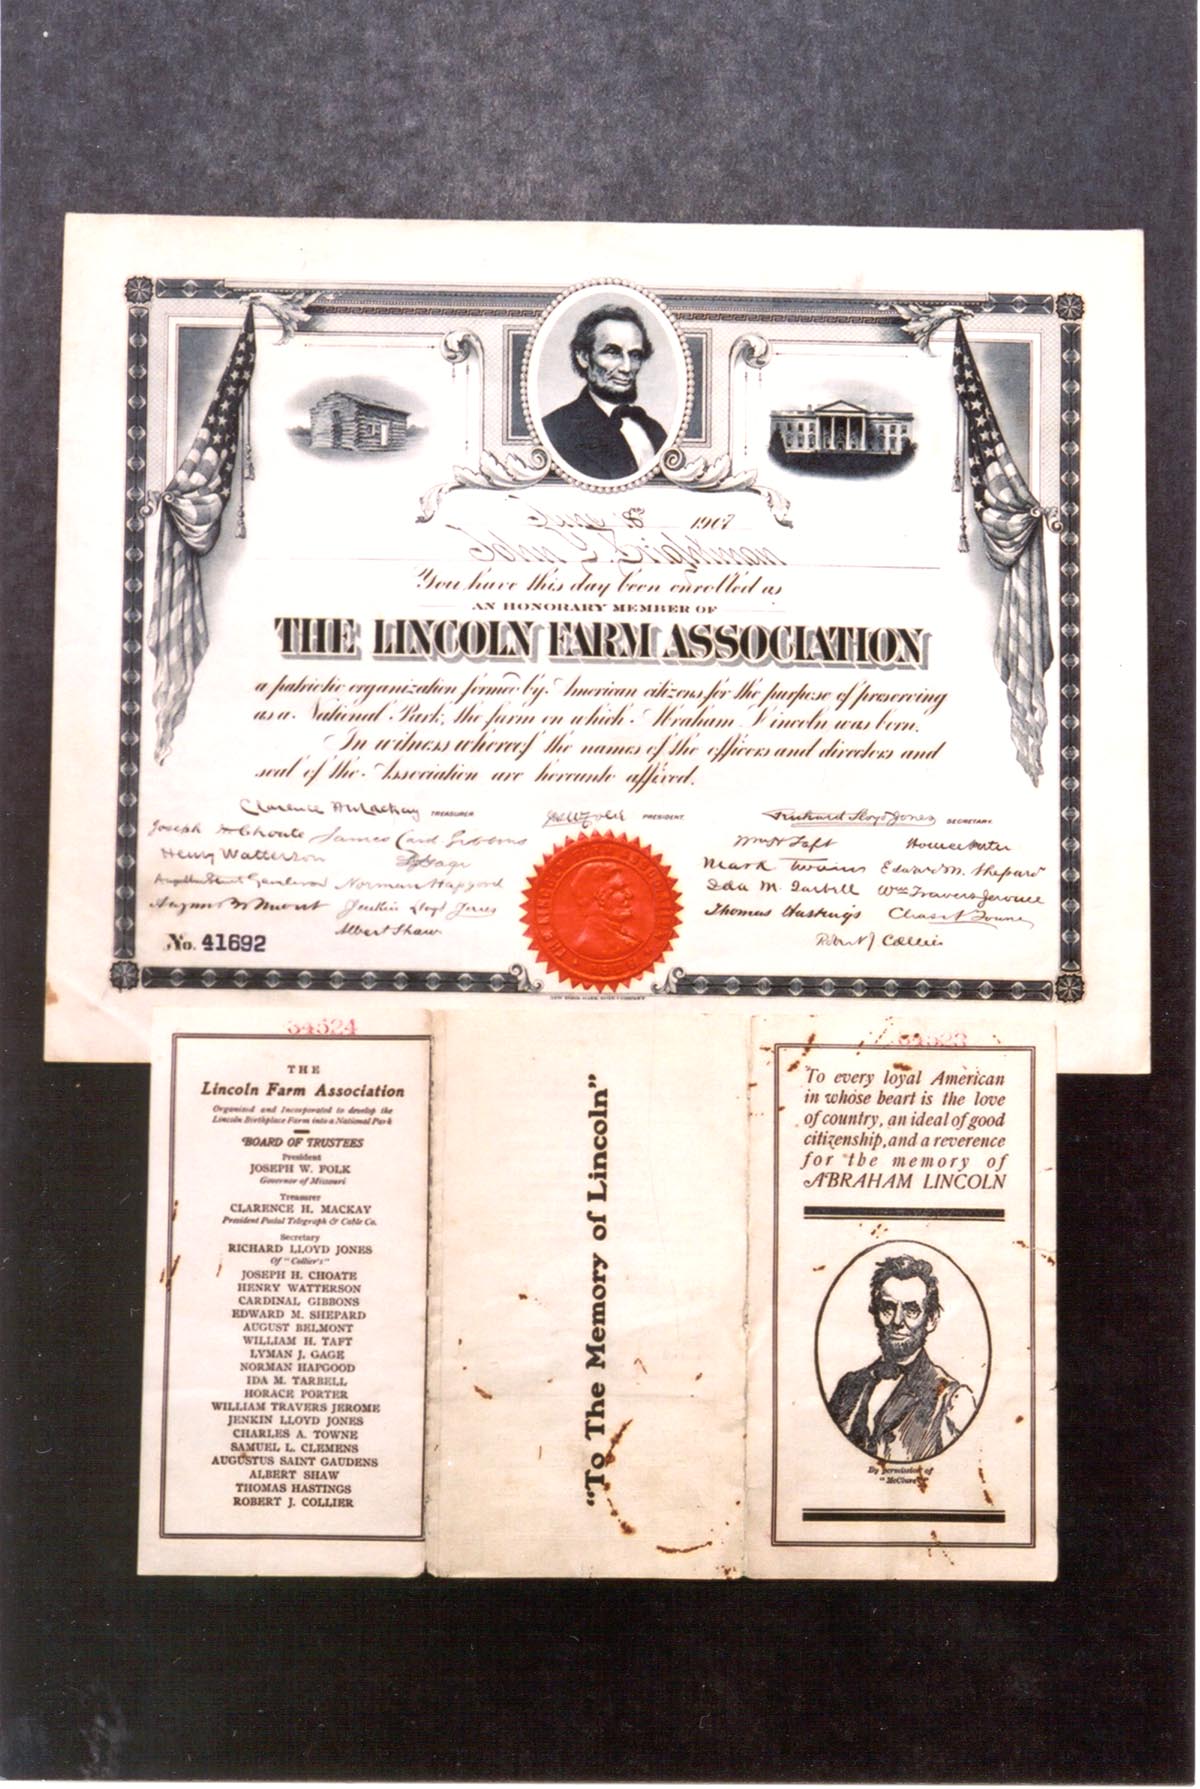 June 18th 1907
John Brightman
You have this day been enrolled as
AN HONORARY MEMBER OF
THE LINCOLN FARM ASSOCIATION
a patriotic organization formed by American citizens for the purpose of preserving
as a National Park, the farm on which Abraham Lincoln was born.
In witness whereof the names of the officers and directors and
seal of the Association are hereunto affixed.
Clarence H Mackay TREASURER
Jos W Folk PRESIDENT
Richard Lloyd Jones SECRETARY
Joseph H Choate James Card Gibbons
Henry Watterson L J Gage
Augustus Saint Gaudens Norman Hapgood
August Belmont Jenkin Lloyd Jones
Albert Shaw
Wm H Taft Horace Porter
Mark Twain Edward M. Shepard
Ida M. Tarbell Wm Travers Jerome
Thomas Hastings Chas A Towne
Robert J Collier
No. 41692
54524
THE
Lincoln Farm Association
Organized and Incorporated to develop the
Lincoln Birthplace Farm into a National Park
BOARD OF TRUSTEES
President
JOSEPH W. FOLK
Governor of Missouri
Treasurer
CLARENCE H. MACKAY
President Postal Telegraph & Cable Co.
Secretary
RICHARD LLOYD JONES
Of "Collier's"
JOSEPH H. CHOATE
HENRY WATTERSON
CARDINAL GIBBONS
EDWARD M. SHEPARD
AUGUST BELMONT
WILLIAM H. TAFT
LYMAN J. GAGE
NORMAN HAPGOOD
IDA M. TARBELL
HORACE PORTER
WILLIAM TRAVERS JEROME
JENKIN LLOYD JONES
CHARLES A. TOWNE
SAMUEL L. CLEMENS
AUGUSTUS SAINT GAUDENS
ALBERT SHAW
THOMAS HASTINGS
ROBERT J. COLLIER
"To The Memory of Lincoln"
54523
To every loyal American
in whose heart is the love
of country, an ideal of good
citizenship, and a reverence
for the memory of
ABRAHAM LINCOLN
By permission of
"McClure's"